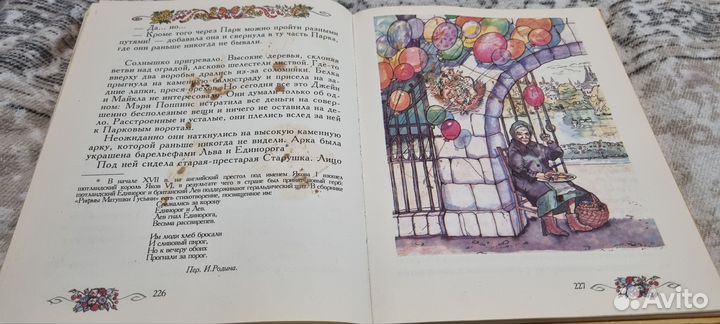 — Да... но...
— Кроме того через Парк можно пройти разными
путями! — добавила она и свернула в ту часть Парка,
где они раньше никогда не бывали.
Солнышко пригревало. Высокие деревья, склоняя
ветви над оградой, ласково шелестели листвой. Где-то
вверху два воробья дрались из-за соломинки. Белка
прыгнула на каменную балюстраду и присела на
задние лапки, прося орехов. Но сегодня все это Джейн
и Майкла не интересовало. Они думали только об од-
ном: Мэри Поппинс истратила все деньги на совер-
шенно бесполезные вещи и ничего не оставила на де-
ло. Расстроенные и усталые, они плелись вслед за ней
к Парковым воротам.
Неожиданно они наткнулись на высокую каменную
арку, которой раньше никогда не видели. Арка была
украшена барельефами Льва и Единорога*.
Под ней сидела старая-престарая Старушка. Лицо
* В начале XVII в. на английский престол под именем Якова I взошел
шотландский король Яков VI, в результате чего в стране был принят новый герб:
шотландский Единорог и британский Лев поддерживают геральдический щит. В сборнике
«Рифмы Матушки Гусыни» есть стихотворение, посвященное им:
Сражались за корону
Единорог и Лев.
Лев гнал Единорога,
Весьма рассвирепев.
Им люди хлеб бросали
И сливовый пирог,
Но к вечеру обоих
Прогнали за порог.
Пер. И.Родина.
226
227
Avito